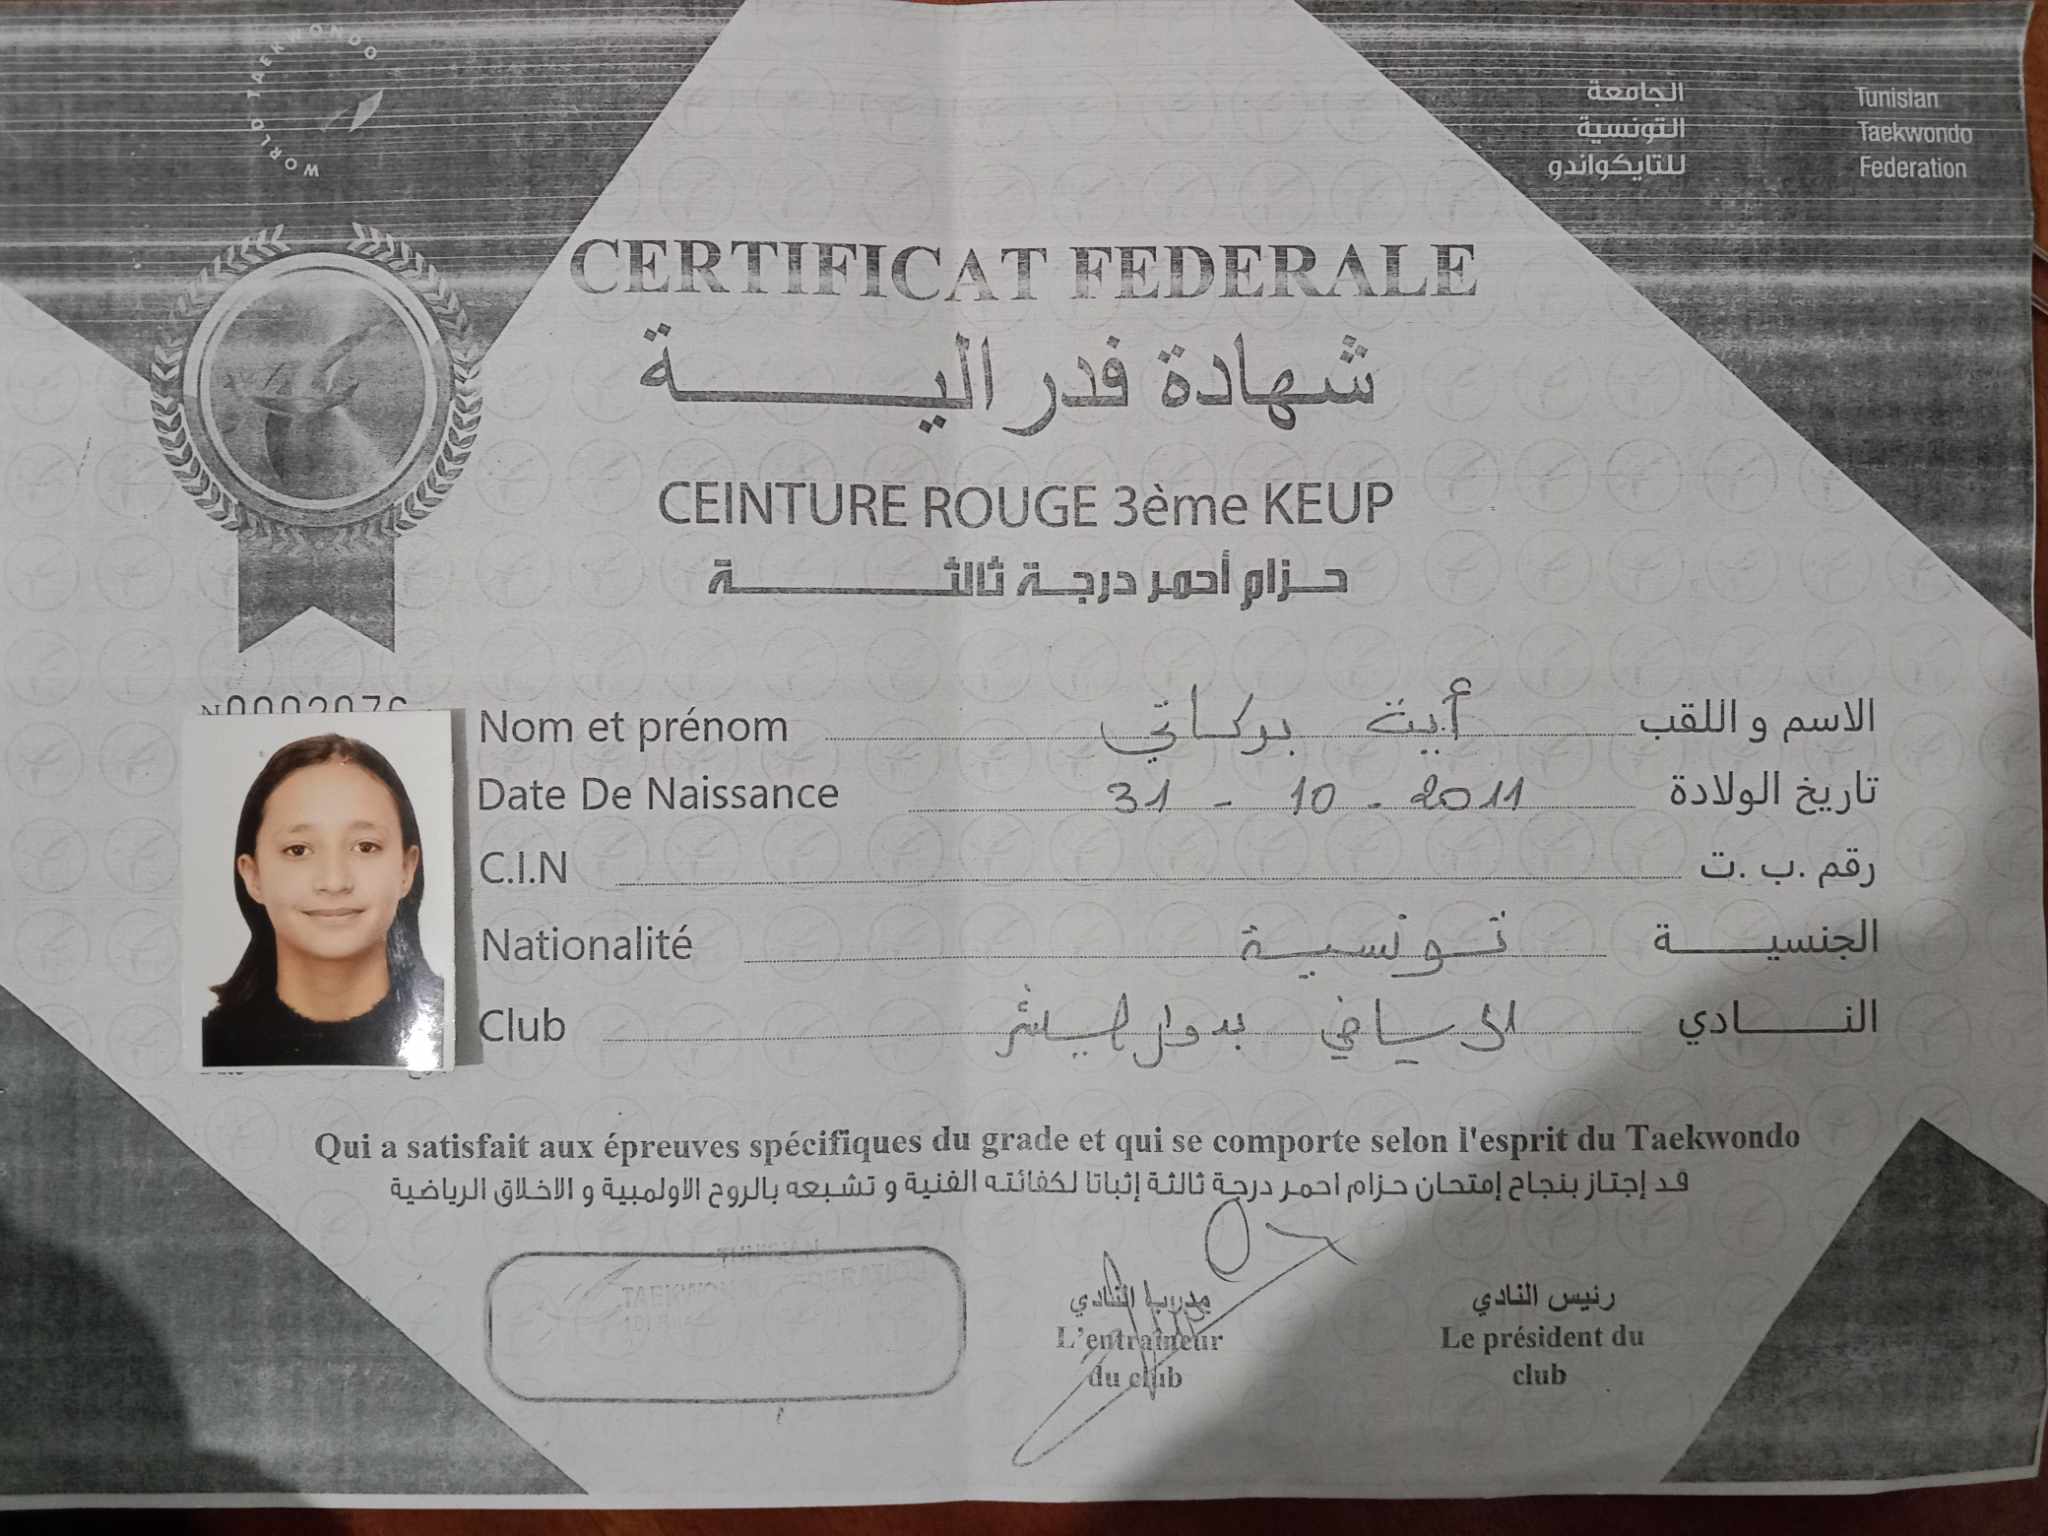 WORLD TAEKWONDO
الجامعة
التونسية
للتايكواندو
Tunisian
Taekwondo
Federation
CERTIFICAT FEDERALE
شهادة فدرالية
CEINTURE ROUGE 3ème KEUP
حزام أحمر درجة ثالثة
Nom et prénom أبية بركاتي الاسم و اللقب
Date De Naissance 31 - 10 - 2011 تاريخ الولادة
C.I.N رقم .ب .ت
Nationalité تونسية الجنسية
Club الرياضي بدوار هيشر النادي
Qui a satisfait aux épreuves spécifiques du grade et qui se comporte selon l'esprit du Taekwondo
قد إجتاز بنجاح إمتحان حزام احمر درجة ثالثة إثباتا لكفائته الفنية و تشبعه بالروح الاولمبية و الاخلاق الرياضية
مدرب النادي
L'entraîneur
du club
رئيس النادي
Le président du
club